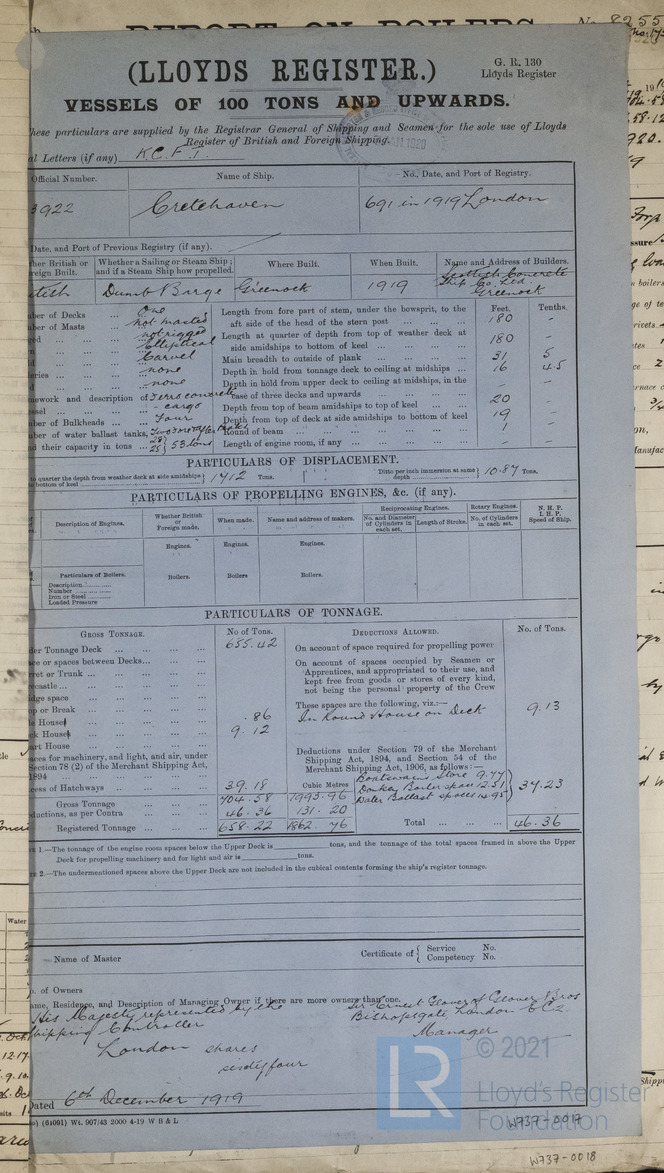 REPORT ON BOILERS
No. 8255
(LLOYDS REGISTER.)
G. R. 130
Lloyds Register
VESSELS OF 100 TONS AND UPWARDS.
hese particulars are supplied by the Registrar General of Shipping and Seamen for the sole use of Lloyds
Register of British and Foreign Shipping.
al Letters (if any) K C F J.
Official Number. Name of Ship. No., Date, and Port of Registry.
3922 Cretehaven 691 in 1919 London
Date, and Port of Previous Registry (if any).
her British or
reign Built. Whether a Sailing or Steam Ship; and if a Steam Ship how propelled. Where Built. When Built. Name and Address of Builders.
tish Dumb Barge Greenock 1919 Scottish Concrete
Ship Co. Ltd.
Greenock
Feet. Tenths.
ber of Decks ... One Length from fore part of stem, under the bowsprit, to the
ber of Masts ... not masted aft side of the head of the stern post 180 -
not rigged Length at quarter of depth from top of weather deck at
Elliptical side amidships to bottom of keel 180 -
Carvel Main breadth to outside of plank 31 5
eries ... none Depth in hold from tonnage deck to ceiling at midships 16 45
none Depth in hold from upper deck to ceiling at midships, in the
mework and description of Ferro concrete case of three decks and upwards - -
ssel ... cargo Depth from top of beam amidships to top of keel 20 -
ber of Bulkheads ... Four Depth from top of deck at side amidships to bottom of keel 19 -
ber of water ballast tanks, Round of beam 1 -
d their capacity in tons 28 25 } 53 tons Length of engine room, if any - -
PARTICULARS OF DISPLACEMENT.
to quarter the depth from weather deck at side amidships
to bottom of keel } 1412 Tons. Ditto per inch immersion at same
depth } 10.87 Tons.
PARTICULARS OF PROPELLING ENGINES, &c. (if any).
Description of Engines. Whether British or Foreign made. When made. Name and address of makers. Reciprocating Engines. Rotary Engines. N. H. P.
I. H. P.
Speed of Ship.
No. and Diameter of Cylinders in each set. Length of Stroke. No. of Cylinders in each set.
Engines. Engines. Engines.
Particulars of Boilers. Boilers. Boilers Boilers.
Description
Number
Iron or Steel
Loaded Pressure
PARTICULARS OF TONNAGE.
GROSS TONNAGE. No of Tons. DEDUCTIONS ALLOWED. No. of Tons.
der Tonnage Deck 655.42 On account of space required for propelling power
ce or spaces between Decks On account of spaces occupied by Seamen or
rret or Trunk Apprentices, and appropriated to their use, and
ecastle kept free from goods or stores of every kind,
idge space not being the personal property of the Crew
op or Break .86 These spaces are the following, viz:—
e House 9.12 In Round House on Deck 9.13
ek House
art House
aces for machinery, and light, and air, under Deductions under Section 79 of the Merchant
Section 78 (2) of the Merchant Shipping Act, Shipping Act, 1894, and Section 54 of the
1894 Merchant Shipping Act, 1906, as follows:—
cess of Hatchways 39.18 Cubic Metres Boatswains Store 9.77
Gross Tonnage 704.58 1993.96 Donkey Boiler space 12.51 } 37.23
ductions, as per Contra 46.36 131.20 Water Ballast spaces 14.95
Registered Tonnage 658.22 1862.76 Total 46.36
1.—The tonnage of the engine room spaces below the Upper Deck is tons, and the tonnage of the total spaces framed in above the Upper
Deck for propelling machinery and for light and air is tons.
2.—The undermentioned spaces above the Upper Deck are not included in the cubical contents forming the ship's register tonnage.
Name of Master Certificate of { Service No.
Competency No.
o. of Owners
ame, Residence, and Description of Managing Owner if there are more owners than one.
His Majesty represented by the Sir Ernest Glover of Glover Bros
Shipping Controller Bishopsgate, London E.C.2
London shares Manager
sixty four
Dated 6th December 1919
(64091) Wt. 907/43 2000 4-19 W B & L
LR © 2021
Lloyd's Register
Foundation
W737-0017
W737-0018